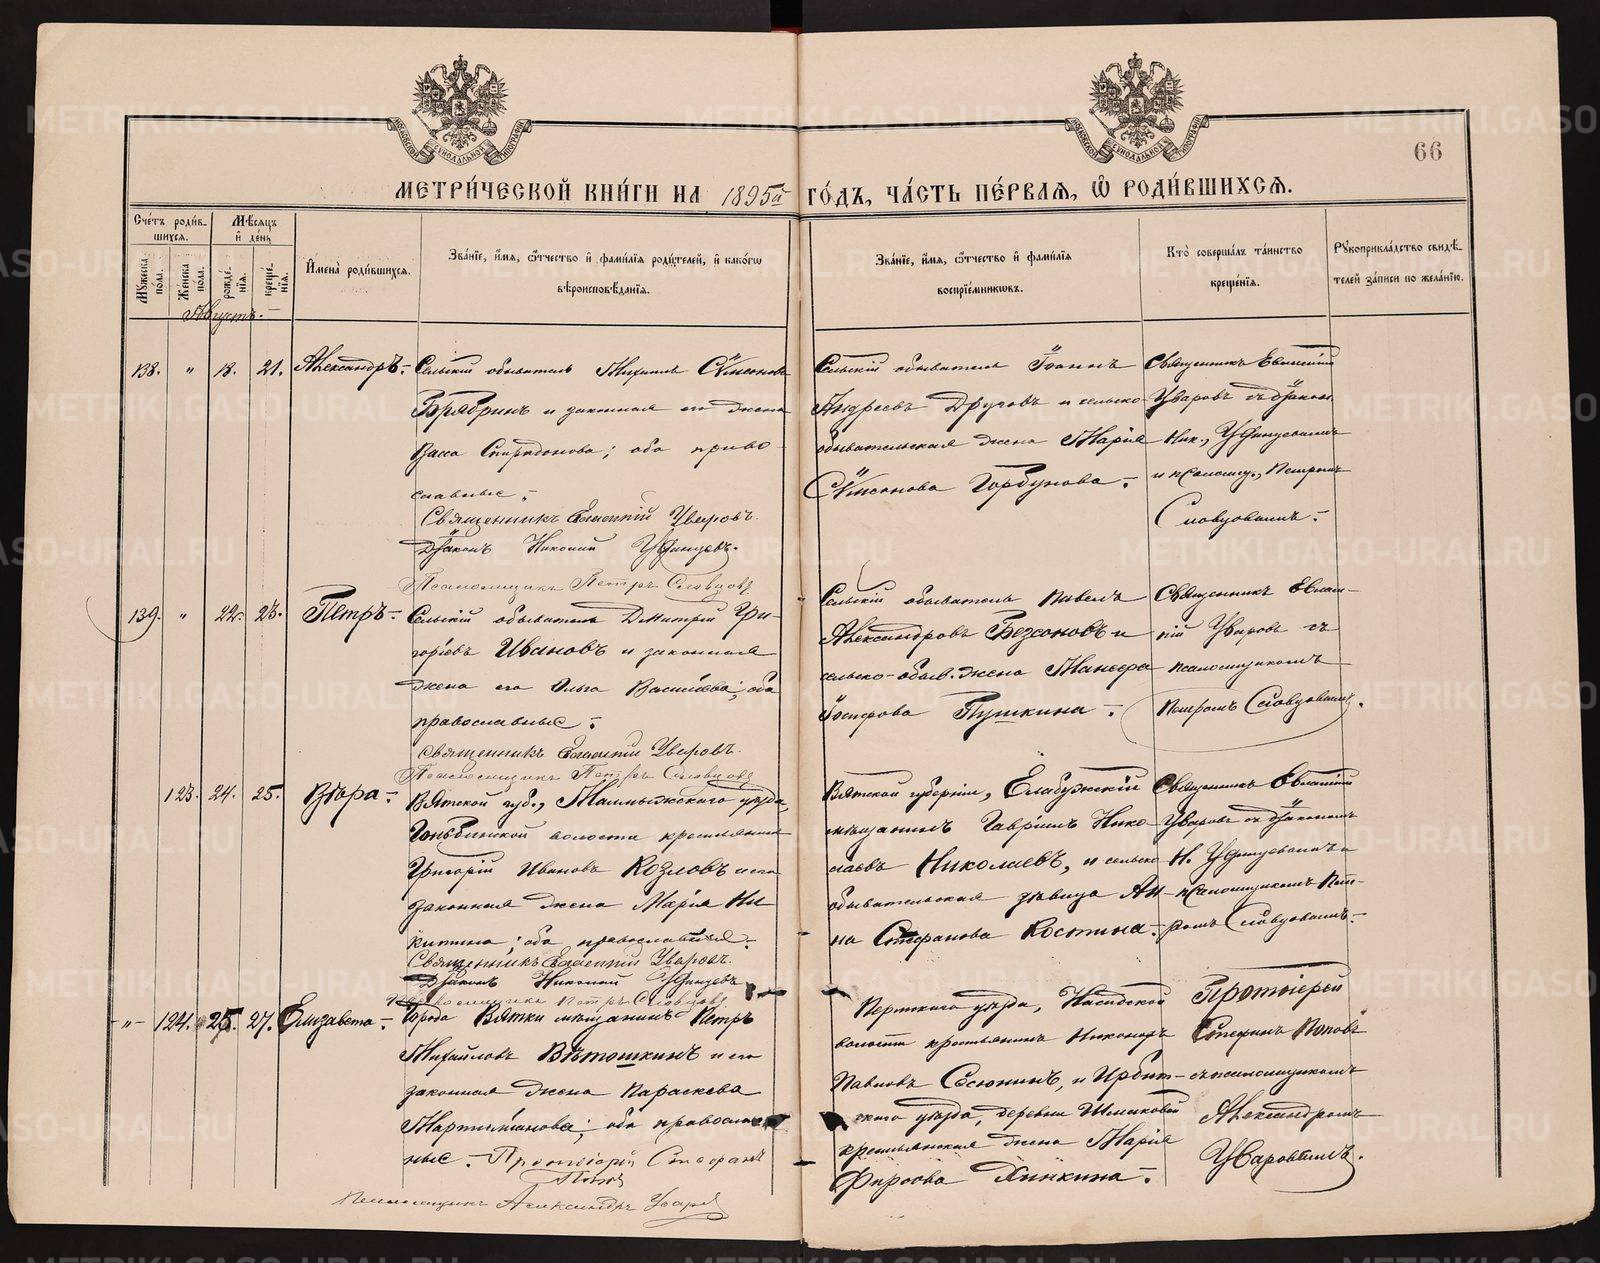 МОСКОВСКОЙ СѴНОДАЛЬНОЙ ТИПОГРАФІИ
МОСКОВСКОЙ СѴНОДАЛЬНОЙ ТИПОГРАФІИ
66
МЕТРИ́ЧЕСКОЙ КНИ́ГИ НА 1895й ГО́ДЪ, ЧА́СТЬ ПЕ́РВАѦ, Ѡ РОДИ́ВШИХСѦ.
Сче́тъ роди́в-
шихсѧ.
Мꙋ́жеска
по́ла.
Же́нска
по́ла.
Мѣ́сѧцъ
и҆ де́нь
рожде́-
нїѧ.
креще́-
нїѧ.
И҆мена̀ роди́вшихсѧ.
Зва́нїе, и҆́мѧ, ѻ҆́тчество и҆ фами́лїѧ роди́телей, и҆ како́гѡ
вѣроисповѣ́данїѧ.
Зва́нїе, и҆́мѧ, ѻ҆́тчество и҆ фами́лїѧ
воспрїе́мникѡвъ.
Кто̀ соверша́лъ та́инство
креще́нїѧ.
Рꙋкоприкла́дство свидѣ́-
телей за́писи по жела́нїю.
Августъ.
138. " 18. 21. Александръ.
Сельскій обыватель Михаилъ Сѵмеоновъ
Брябринъ и законная его жена
Васса Спиридонова; оба право-
славные.
Священникъ Евлампій Уваровъ.
Діаконъ Николай Удинцевъ.
Псаломщикъ Петръ Словцовъ
Сельскій обыватель Іоаннъ
Андреевъ Друговъ и сельско-
обывательская жена Марія
Сѵмеонова Горбунова.
Священникъ Евлампій
Уваровъ съ діакон.
Ник. Удинцевымъ
и псаломщ. Петромъ
Словцовымъ.
139. " 22. 23. Петръ.
Сельскій обыватель Димитрій Гри-
горіевъ Ивановъ и законная
жена его Ольга Васильева; оба
православные.
Священникъ Евлампій Уваровъ.
Псаломщикъ Петръ Словцовъ
Сельскій обыватель Павелъ
Александровъ Безсоновъ и
сельско-обыв. жена Гликерія
Іосифова Пушкина.
Священникъ Евлам-
пій Уваровъ съ
псаломщикомъ
Петромъ Словцовымъ.
123. 24. 25. Вѣра.
Вятской губ., Малмыжскаго уѣзда,
Гоньбинской волости крестьянинъ
Григорій Ивановъ Козловъ и его
законная жена Марія Ни-
китина; оба православные.
Священникъ Евлампій Уваровъ.
Діаконъ Николай Удинцевъ
Псаломщикъ Петръ Словцовъ
Вятской губерніи, Елабужскій
мѣщанинъ Гавріилъ Нико-
лаевъ Николаевъ, и сельско
обывательская дѣвица Ан-
на Стефанова Костина.
Священникъ Евлампій
Уваровъ съ діакономъ
Н. Удинцевымъ и
псаломщикомъ Пет-
ромъ Словцовымъ.
" 124. 25. 27. Елизавета.
Города Вятки мѣщанинъ Петръ
Михайловъ Вѣтошкинъ и его
законная жена Параскева
Мартиміанова; оба православ-
ные. Протоіерей Стефанъ
Поповъ
Псаломщикъ Александръ Уваровъ
Пермскаго уѣзда, Насадской
волости крестьянинъ Никаноръ
Павловъ Сосюнинъ, и Ирбит-
скаго уѣзда, деревни Шмаковой
крестьянская жена Марія
Фирсова Хинкина.
Протоіерей
Стефанъ Поповъ
съ псаломщикомъ
Александромъ
Уваровымъ.
METRIKI.GASO-URAL.RU